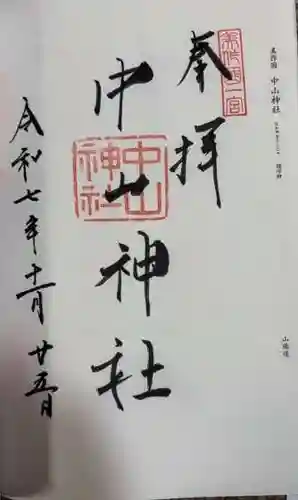 美作國 中山神社
山陽道
美作國一宮
奉拝
中山神社
中山
神社
令和七年十一月廿五日